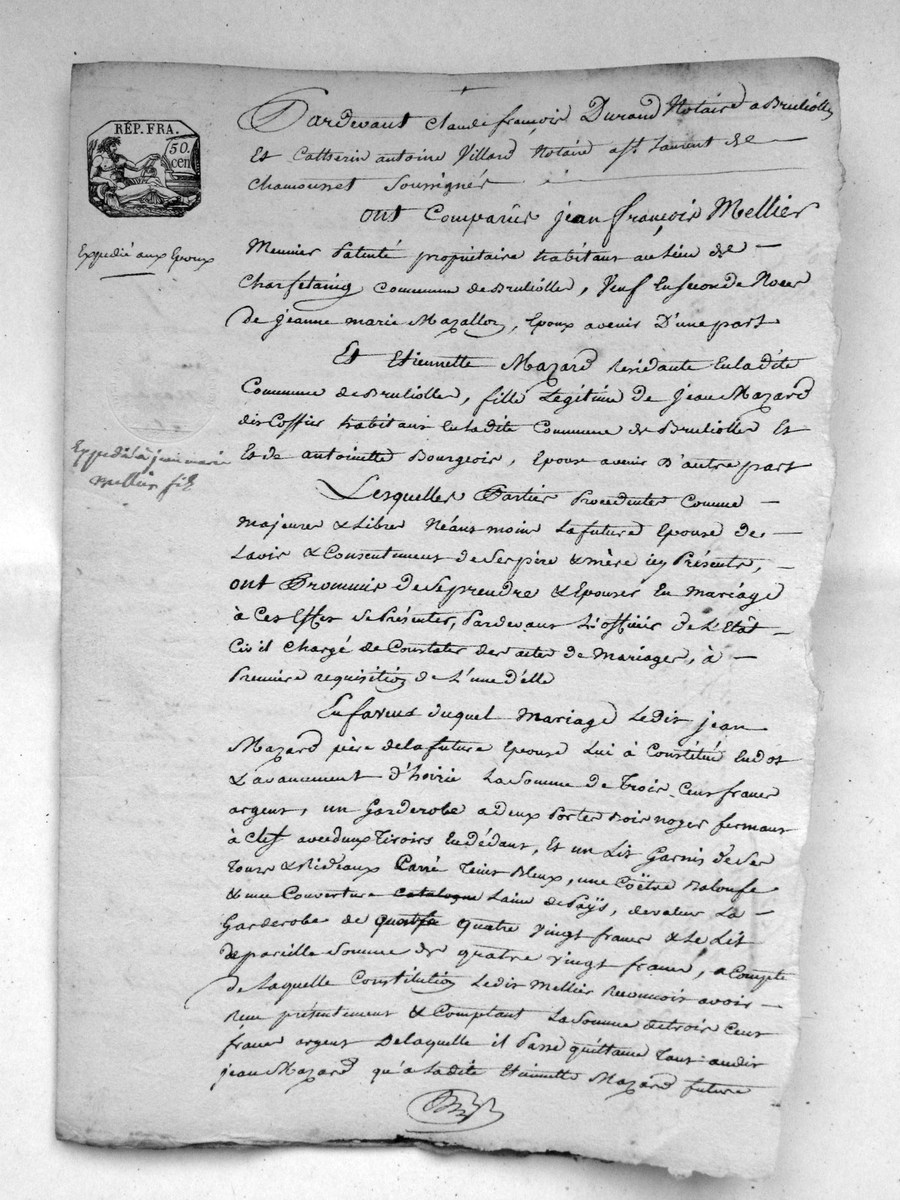 RÉP. FRA.
50.
cen
Expedié aux Epoux
Expedié à jean marie
mellier fils
Pardevant Claude françois Durand Notaire a Brulliolles
Et Catherin antoine Villard Notaire a St Laurent de
Chamousset Soussignés
ont Comparûs jean françois Mellier
Meunier Patenté propriétaire habitant au lieu de
Charfetaing Commune de Brulliolles, Veuf En Seconde Noces
de jeanne marie Mazallon, Epoux avenir D'une part
Et Etiennette Mazard Residante En la dite
Commune de Brulliolles, fille Légitime de jean Mazard
dit Coffier habitant En la dite Commune de Brulliolles Et
Et de antoinette Bourgeois, Epouse avenir d'autre part
Lesquelles Parties Procedentes Comme
majeures & Libres Néansmoin La future Epouse de
L'avis & Consentement de Ses père & mère icy Présents,
ont Prommis de Se prendre & Epouser En mariage
à Ces Effets se Présenter, Pardevant L'officier de L'Etat
Civil Chargé de Constater des actes de mariages, à
Première requisition de L'une d'elle
En faveur duquel mariage Ledit jean
Mazard père de la future Epouse Lui à Constitué En dot
& avancement d'hoirie La Somme de Trois Cent francs
argent, un Garderobe a deux Portes Bois noyer fermant
à Clef avec deux Tiroirs En dédant, Et un Lit Garnis de Ses
Tours & Rideaux Carré Teint Bleux, une Coëtre Baloufe
& une Couverture catalogne Laine de Païs, de valeur La
Garderobe de quatre quatre vingt francs & Le Lit
de pareille Somme de quatre vingt francs, a Compte
de Laquelle Constitution Ledit Mellier Reconnoit avoir
Reçu présentement & Comptant La Somme de trois Cent
francs argent De laquelle il Passe quittance Tant audit
jean Mazard qu'a Ladite Etiennette Mazard future